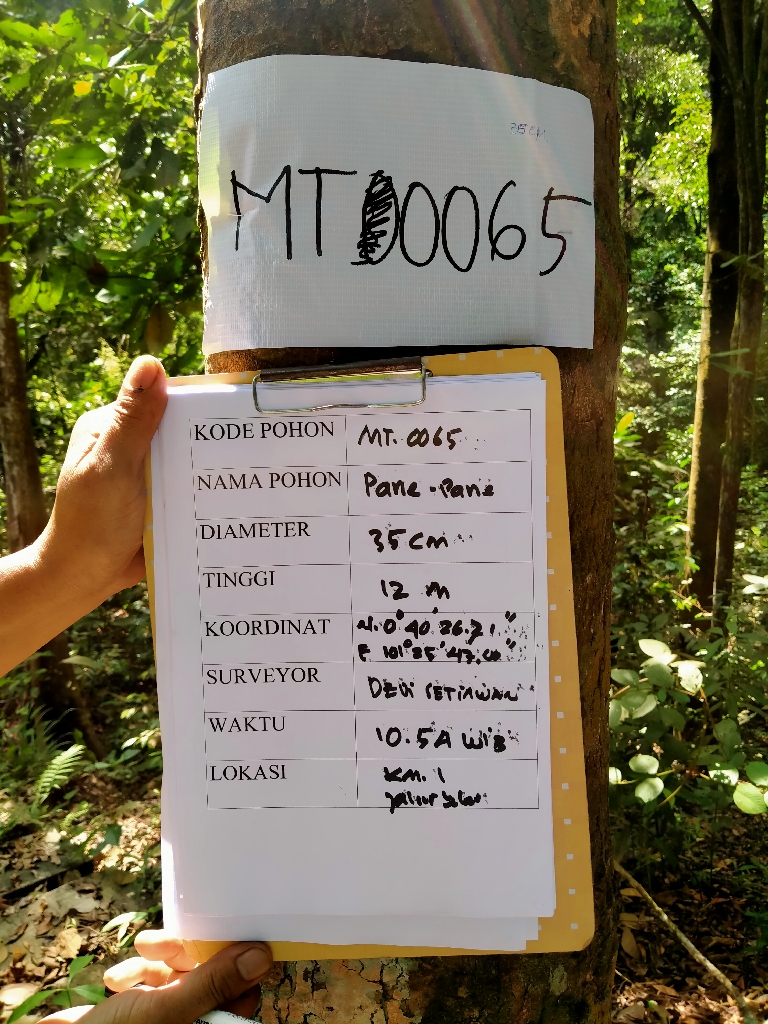 35 CM
MT 0065
KODE POHON MT. 0065
NAMA POHON Pane - Pane
DIAMETER 35 cm
TINGGI 12 m
KOORDINAT N. 0° 40' 26.71"
E 101°
SURVEYOR DEDI SETIAWAN
WAKTU 10.5A WIB
LOKASI KM. 1
jalur